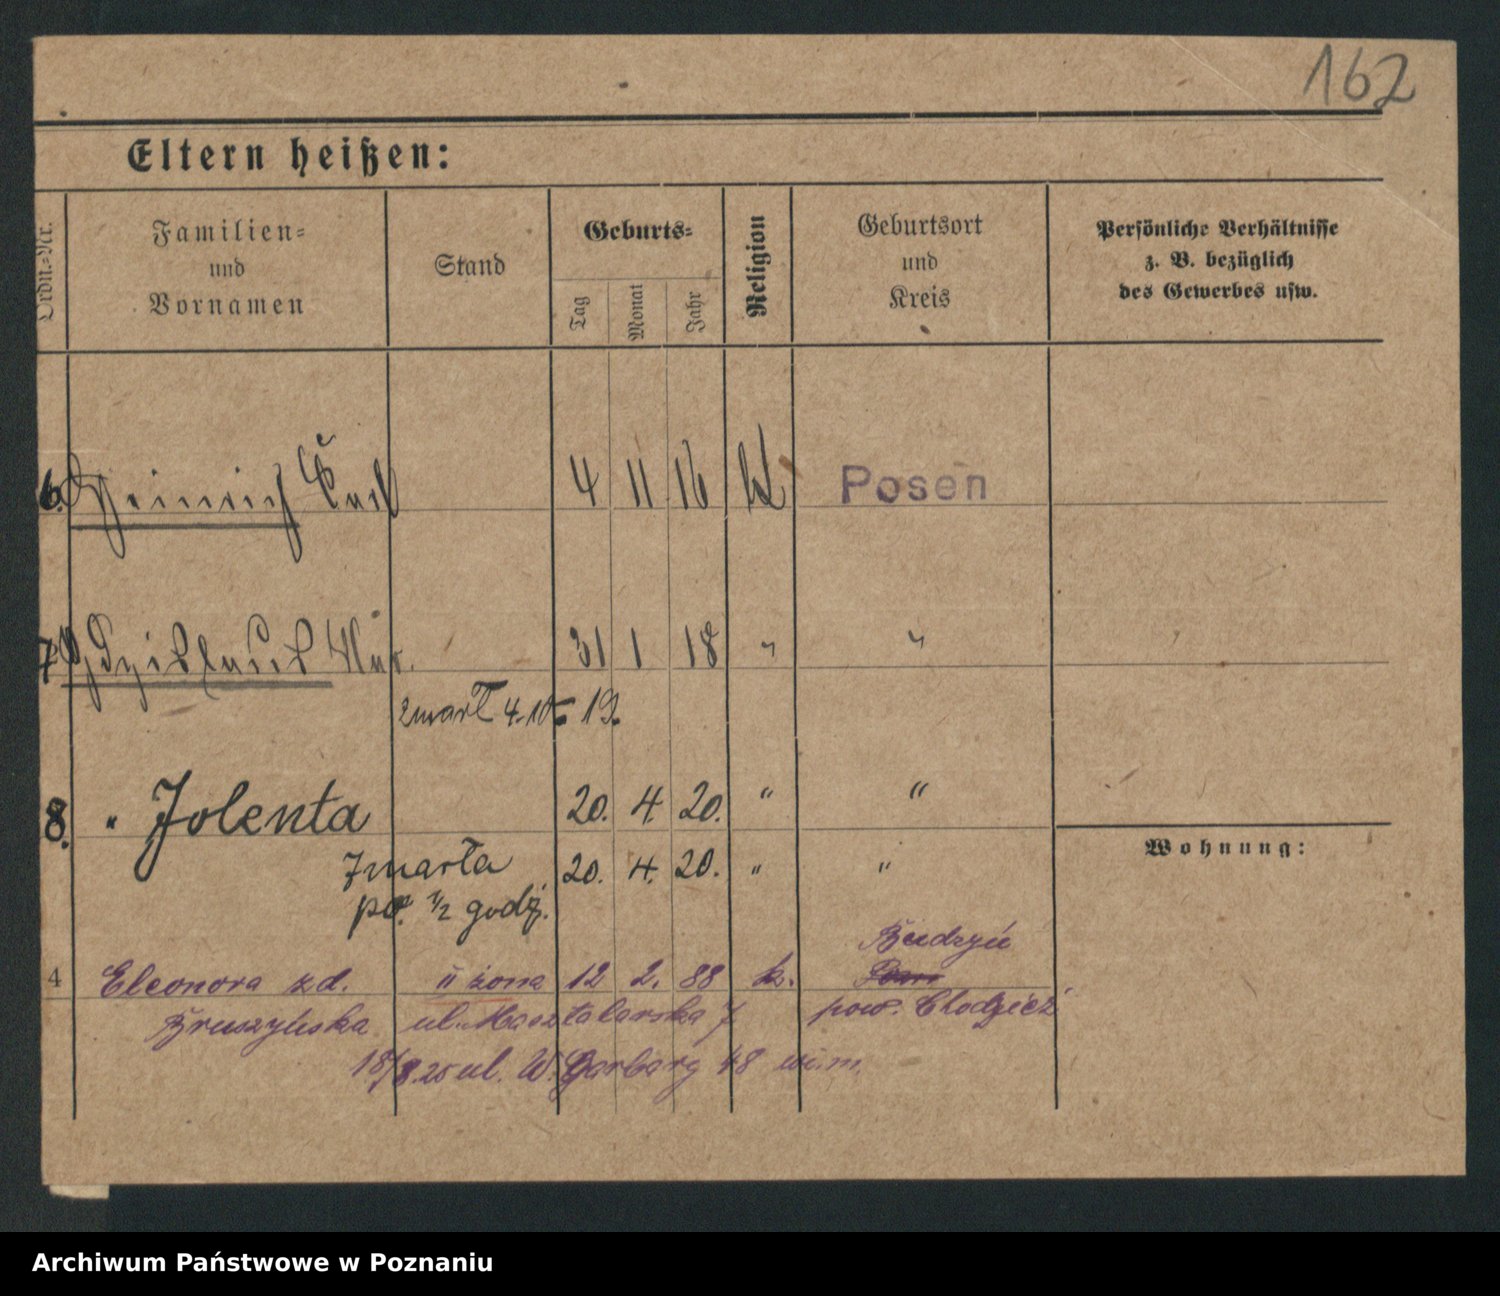 162
Eltern heißen:
Ordn.-Nr.
Familien-
und
Vornamen
Stand
Geburts-
Tag
Monat
Jahr
Religion
Geburtsort
und
Kreis
Persönliche Verhältnisse
z. B. bezüglich
des Gewerbes usw.
6. Heinrich 4 11 16 k Posen
7. 31 1 18 " "
zmarł 4.10 19.
8. " Jolenta 20. 4. 20. " "
zmarła 20. 4. 20. " "
po ½ godź.
Wohnung:
Budzyń
4 Eleonora zd. II żona 12 2. 88 k.
ul. Masztalarska 7 pow. Chodzież
18/8.25 ul. W. Garbary 48 m.
Archiwum Państwowe w Poznaniu